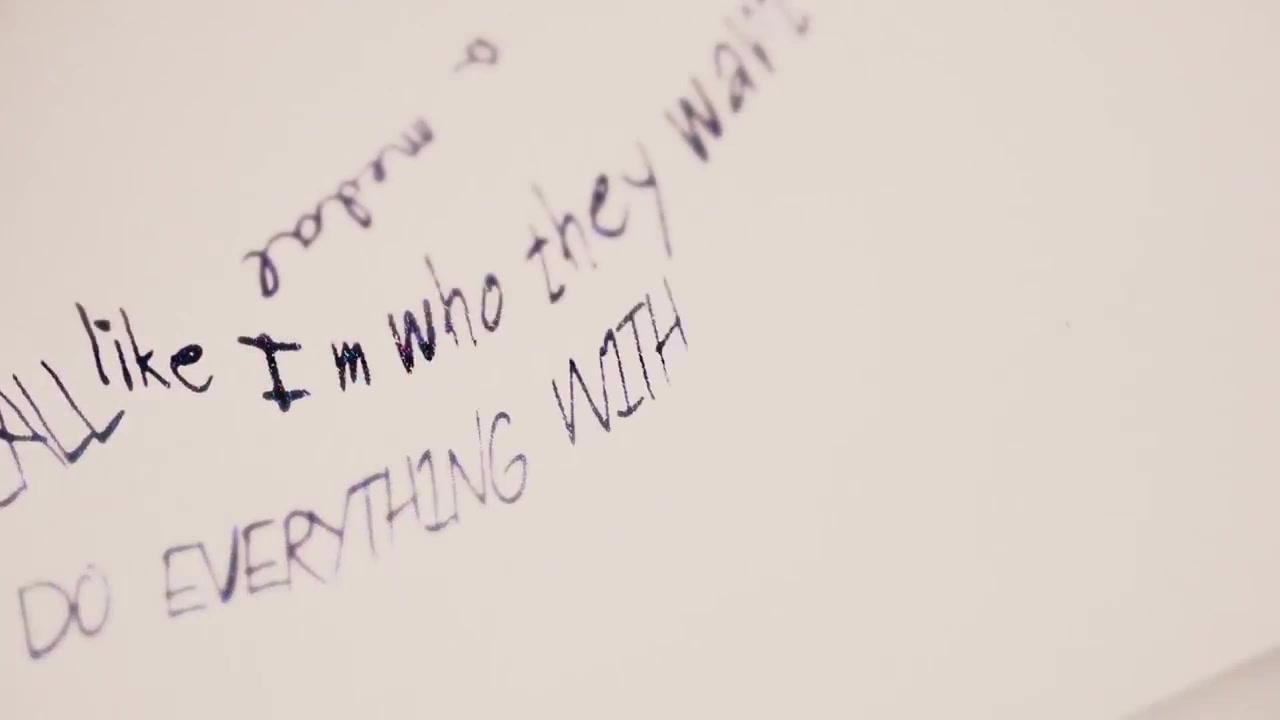 a
ALL like I'm who they wait
DO EVERYTHING WITH